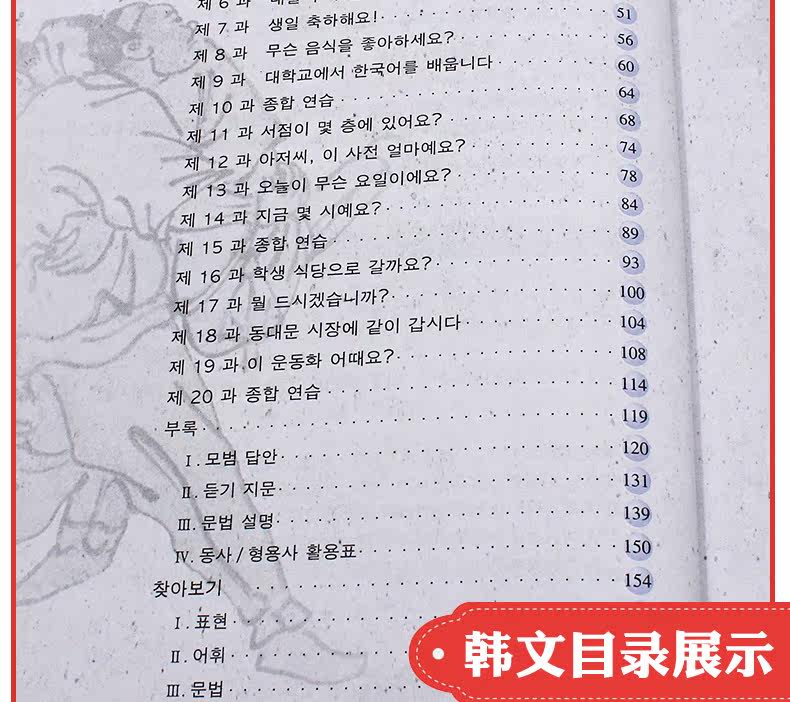 제 6 과
제 7 과 생일 축하해요! 51
제 8 과 무슨 음식을 좋아하세요? 56
제 9 과 대학교에서 한국어를 배웁니다 60
제 10 과 종합 연습 64
제 11 과 서점이 몇 층에 있어요? 68
제 12 과 아저씨, 이 사전 얼마예요? 74
제 13 과 오늘이 무슨 요일이에요? 78
제 14 과 지금 몇 시예요? 84
제 15 과 종합 연습 89
제 16 과 학생 식당으로 갈까요? 93
제 17 과 뭘 드시겠습니까? 100
제 18 과 동대문 시장에 같이 갑시다 104
제 19 과 이 운동화 어때요? 108
제 20 과 종합 연습 114
부록 119
Ⅰ. 모범 답안 120
Ⅱ. 듣기 지문 131
Ⅲ. 문법 설명 139
Ⅳ. 동사 / 형용사 활용표 150
찾아보기 154
Ⅰ. 표현
Ⅱ. 어휘
Ⅲ. 문법
· 韩文目录展示